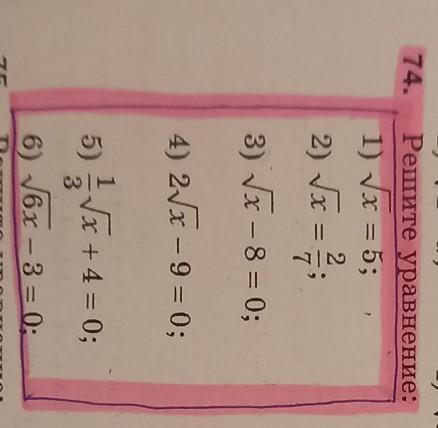 74. Решите уравнение:
1) √x = 5;
2) √x = 2/7;
3) √x − 8 = 0;
4) 2√x − 9 = 0;
5) 1/3√x + 4 = 0;
6) √6x − 3 = 0;
75